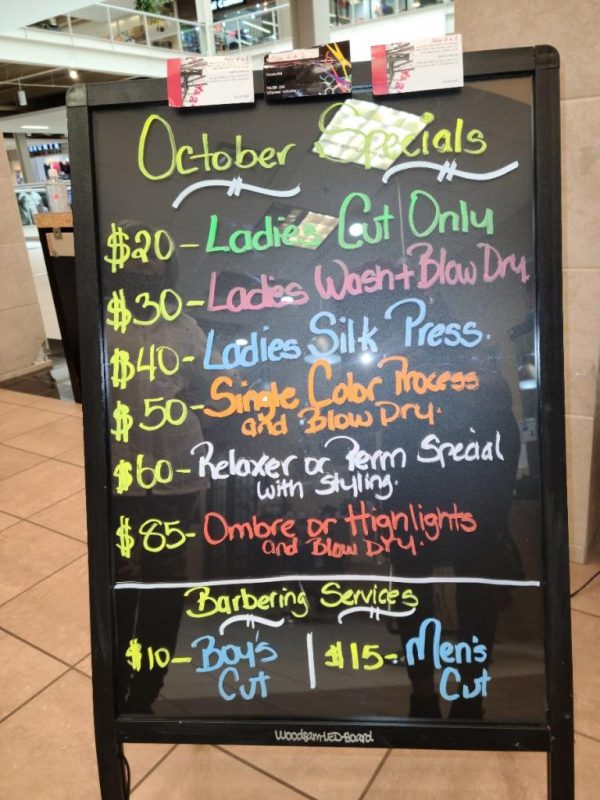 October Specials
$20 - Ladies Cut Only
$30 - Ladies Wash + Blow Dry
$40 - Ladies Silk Press.
$50 - Single Color Process
and Blow Dry.
$60 - Relaxer or Perm Special
with Styling.
$85 - Ombre or Highlights
and Blow Dry.
Barbering Services
$10 - Boy's Cut | $15 - Men's Cut
Woodsam LED Board